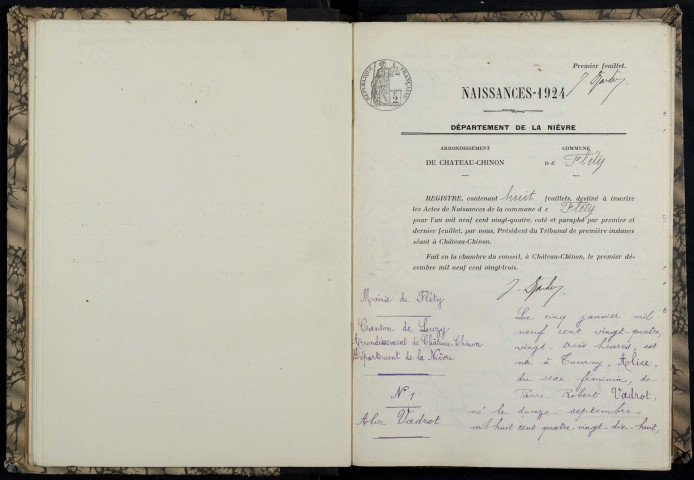 Premier feuillet.
RÉPUBLIQUE FRANÇAISE
2
NAISSANCES-1924
DÉPARTEMENT DE LA NIÈVRE
ARRONDISSEMENT
DE CHATEAU-CHINON
COMMUNE
DE Fléty
REGISTRE, contenant huit feuillets, destiné à inscrire
les Actes de Naissances de la commune de Fléty
pour l'an mil neuf cent vingt-quatre, coté et paraphé par premier et
dernier feuillet, par nous, Président du Tribunal de première instance
séant à Château-Chinon.
Fait en la chambre du conseil, à Château-Chinon, le premier dé-
cembre mil neuf cent vingt-trois.
Mairie de Fléty
Canton de Luzy
Arrondissement de Château-Chinon
Département de la Nièvre
N° 1
Alice Vadrot
Le cinq janvier mil
neuf cent vingt-quatre,
vingt-trois heures, est
née à Tourny, Alice,
du sexe féminin, de
Pierre Robert Vadrot,
né le douze septembre
mil huit cent quatre-vingt-dix-huit,